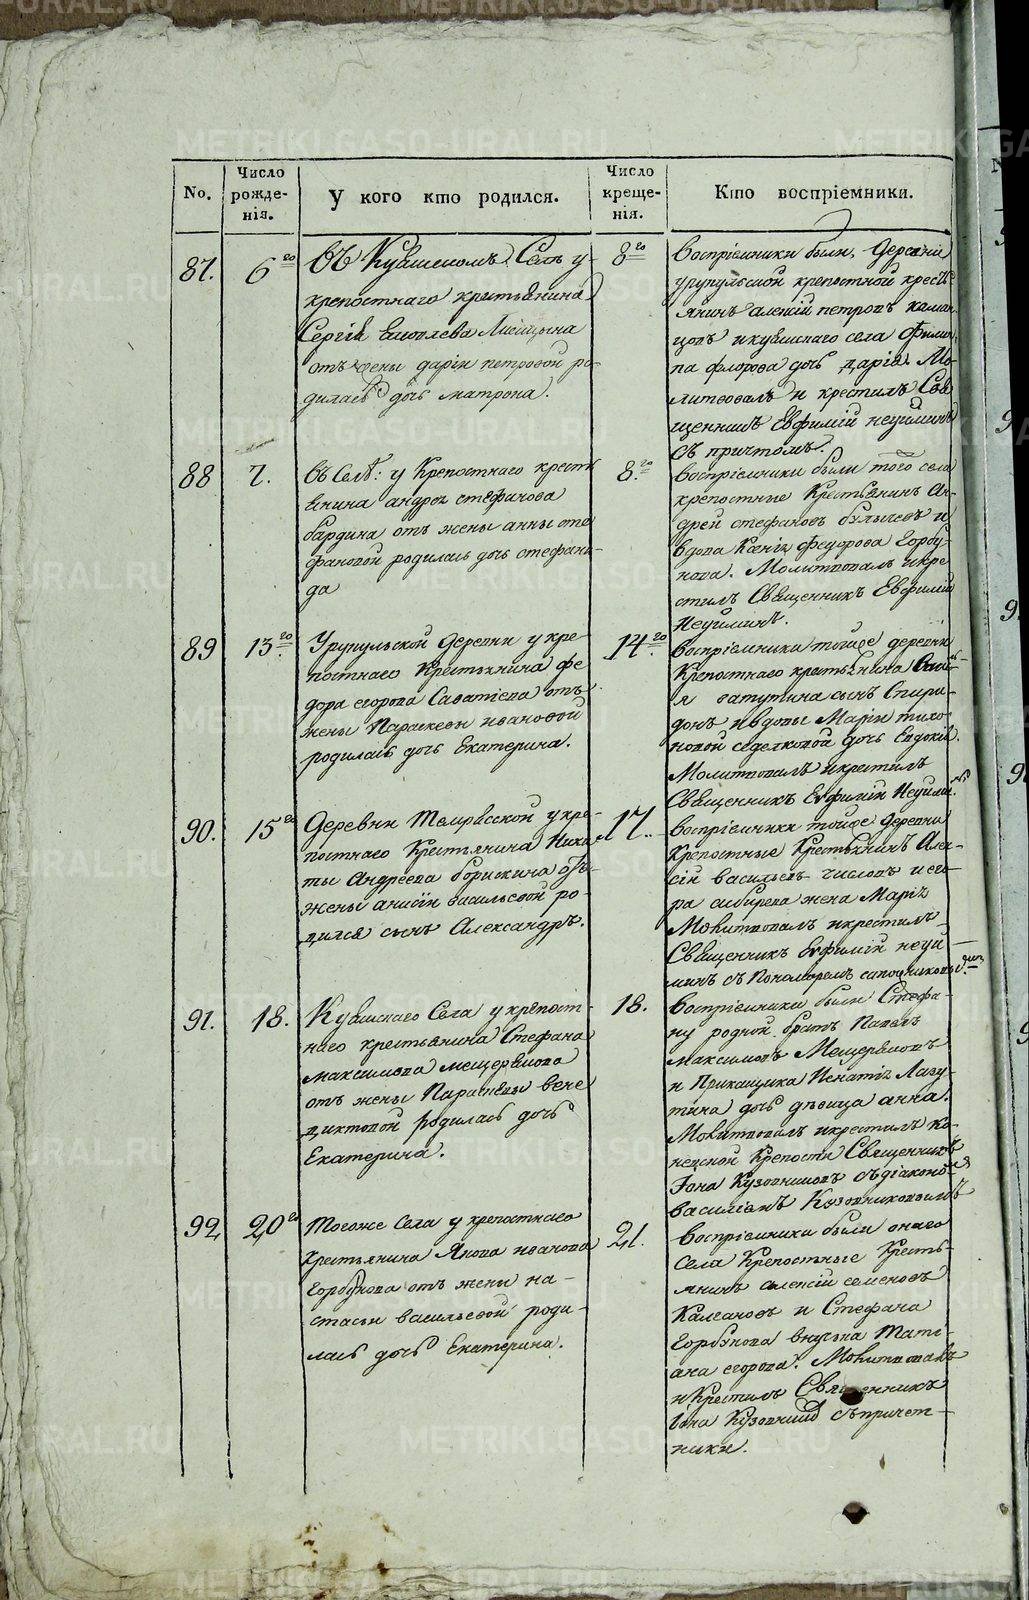 No.
Число рожде-нія.
У кого кто родился.
Число креще-нія.
Кто воспріемники.
87.
6го
Въ Кувинскомъ Селѣ у
крепостнаго крестьянина
Сергія
отъ жены даріи петровой ро-
дилась дочь матрона.
8го
Воспріемники были, Деревни
урупульской крепостной кресть
янинъ алексій петровъ
села Филип
па флорова дочь дарія. Мо-
литвовалъ и крестилъ Свя
щенникъ Евфимій неуйминъ
съ причтомъ.
88
7.
въ Селѣ: у Крепостнаго крестъ
янина андрея стефанова
бардина отъ жены анны сте
фановой родилась дочь стефани-
да
8.го
воспріемники были того села
крепостные Крестьянинъ Ан-
дрей стефановъ булычевъ и
вдова Ксенія федорова Горбу-
нова. Молитвовалъ и кре
стилъ Священникъ Евфимій
Неуйминъ.
89
13го
Урупульской деревни у кре-
постнаго Крестьянина фе
дора егорова Саватіева отъ
жены Параскевы ивановой
родилась дочь Екатерина.
14го
воспріемники тойже деревни
Крепостнаго крестьянина
я ватутина сынъ Спири-
донъ и вдовы Маріи тихо-
новой седелковой дочь Евдокія.
Молитвовалъ и крестилъ
Священникъ Евфимій Неуйминъ
90.
15го
Деревни у кре-
постнаго Крестьянина Ники
ты Андреева борискина отъ
жены анисіи васильевой ро-
дился сынъ Александръ.
17.
воспріемники тойже деревни
Крепостные Крестьянинъ Алек-
сій васильевъ числовъ и его-
ра сибирева жена Марія
Молитвовалъ и крестилъ
Священникъ Евфимій неуй
минъ съ Пономаремъ
91.
18.
Кувинскаго Села у крепост-
наго крестьянина Стефана
максимова мещерякова
отъ жены Параскевы вене
диктовой родилась дочь
Екатерина.
18.
Воспріемники были Стефа-
ну родной братъ Павелъ
максимовъ Мещеряковъ
и Прикащика Игнатія Лагу-
тина дочь дѣвица анна.
Молитвовалъ и крестилъ
Крепости Священникъ
Іона Кузовниковъ съ діакономъ
василіемъ Кузовниковымъ
92
20го
Тогоже Села у крепостнаго
Крестьянина Якова иванова
Горбунова отъ жены на-
стасьи васильевой роди-
лась дочь Екатерина.
21.
воспріемники были онаго
села Крепостные Кресть-
янинъ алексій семеновъ
и Стефана
Горбунова внучка Тать-
ана егорова. Молитвовалъ
и Крестилъ Священникъ
Іона Кузовниковъ съ причет-
ники.
METRIKI.GASO-URAL.RU